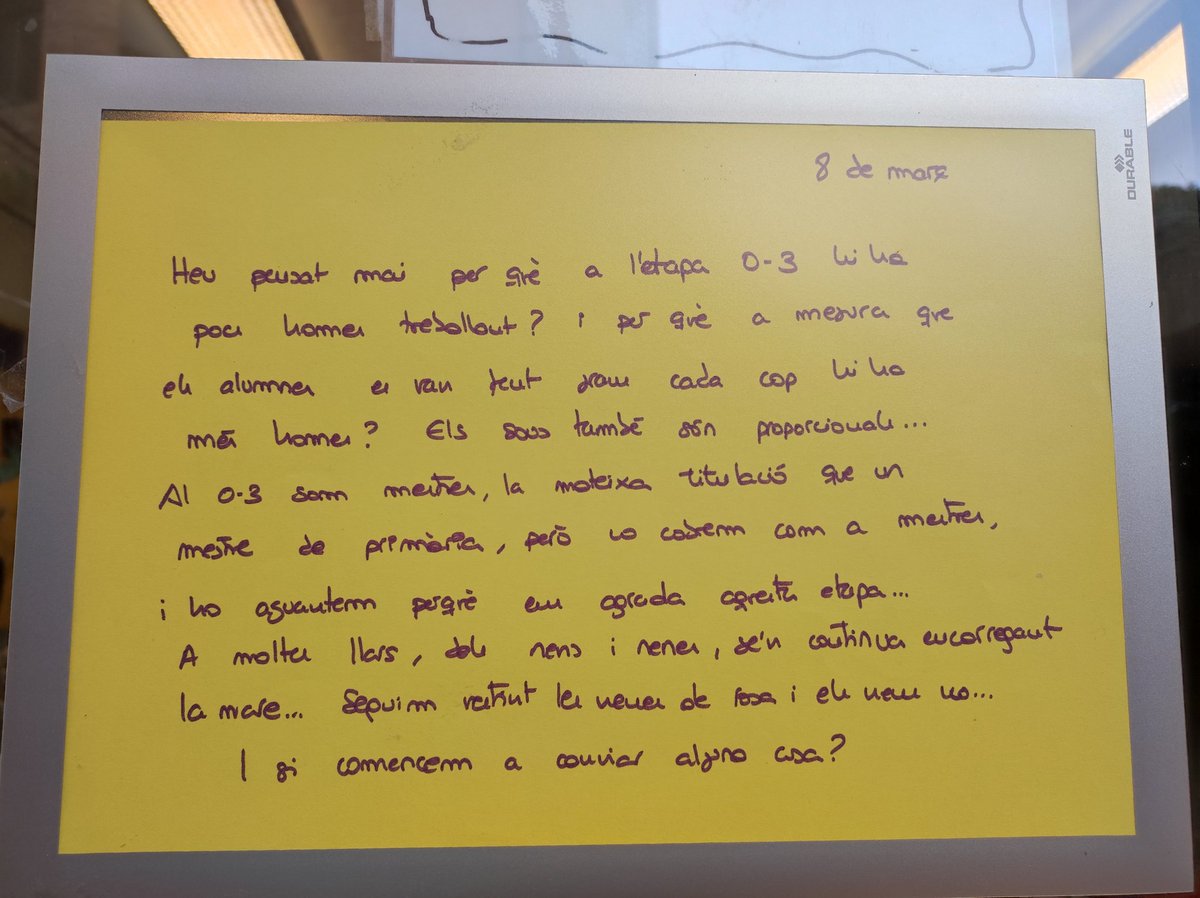 DURABLE
8 de març
Heu pensat mai per què a l'etapa 0-3 hi ha
pocs homes treballant? i per què a mesura que
els alumnes es van fent grans cada cop hi ha
més homes? Els sous també són proporcionals...
Al 0-3 som mestres, la mateixa titulació que un
mestre de primària, però no cobrem com a mestres,
i ho aguantem perquè ens agrada aquesta etapa...
A moltes llars, dels nens i nenes, se'n continua encarregant
la mare... Seguim vestint les nenes de rosa i els nens no...
I si comencem a canviar alguna cosa?